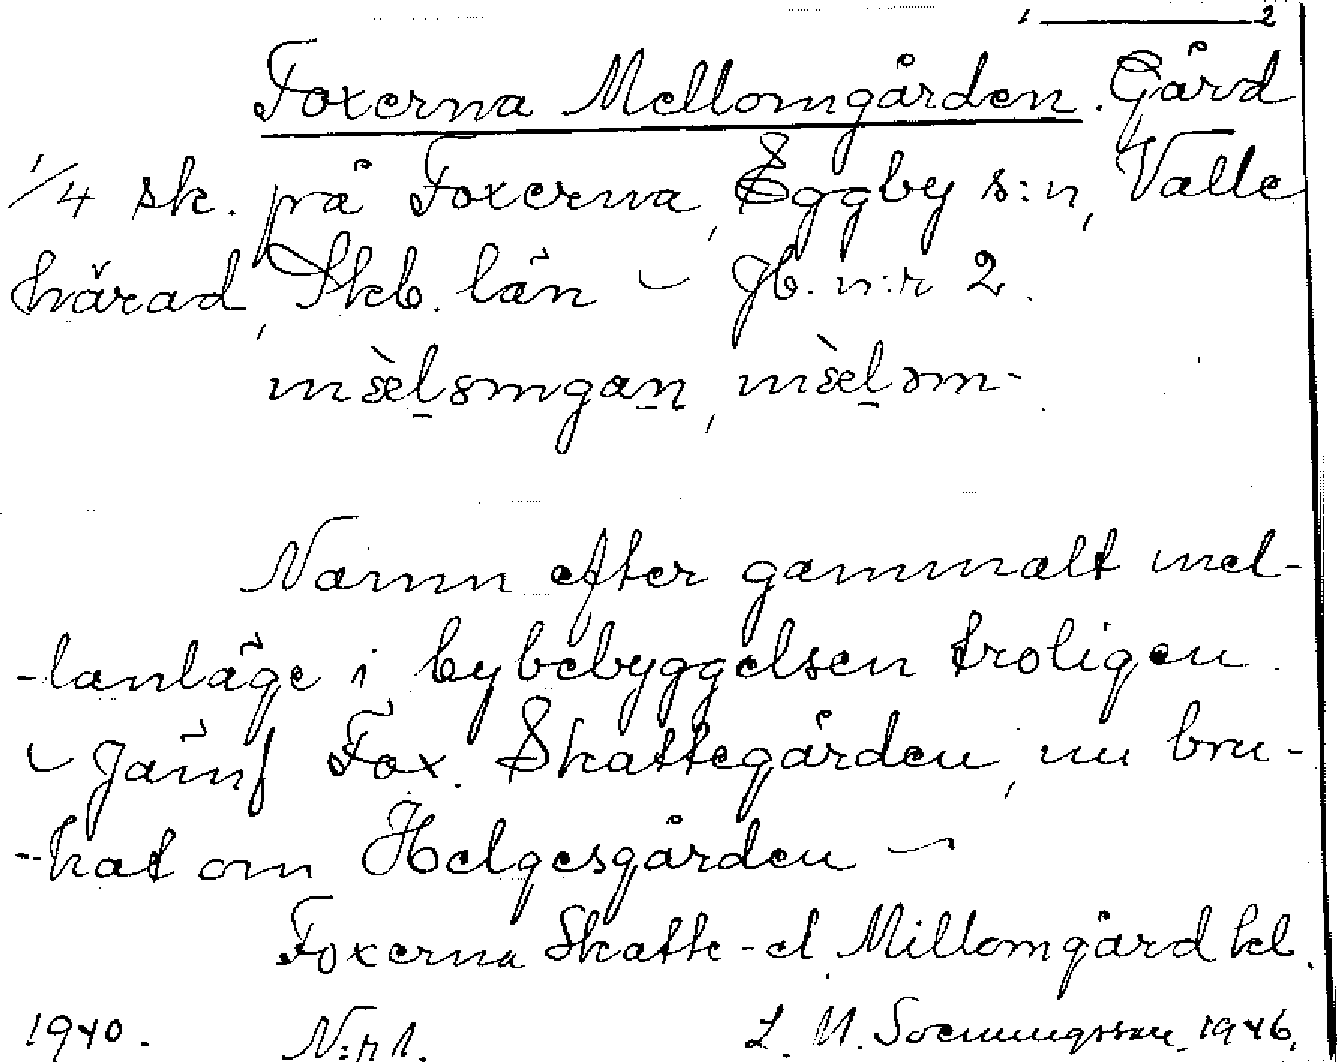 1 — 2
Foxerna Mellomgården. Gård
1/4 sk. på Foxerna, Eggby s:n, Valle
härad, Skb. län - Jb. n:r 2.
Namn efter gammalt mel-
-lanläge i bybebyggelsen troligen.
- Jämf Fox. Skattegården, nu bru-
-kat om Helgesgården -
Foxerna Skatte- el. Millomgård kl.
1940. N:r 1. L. N. 1946.